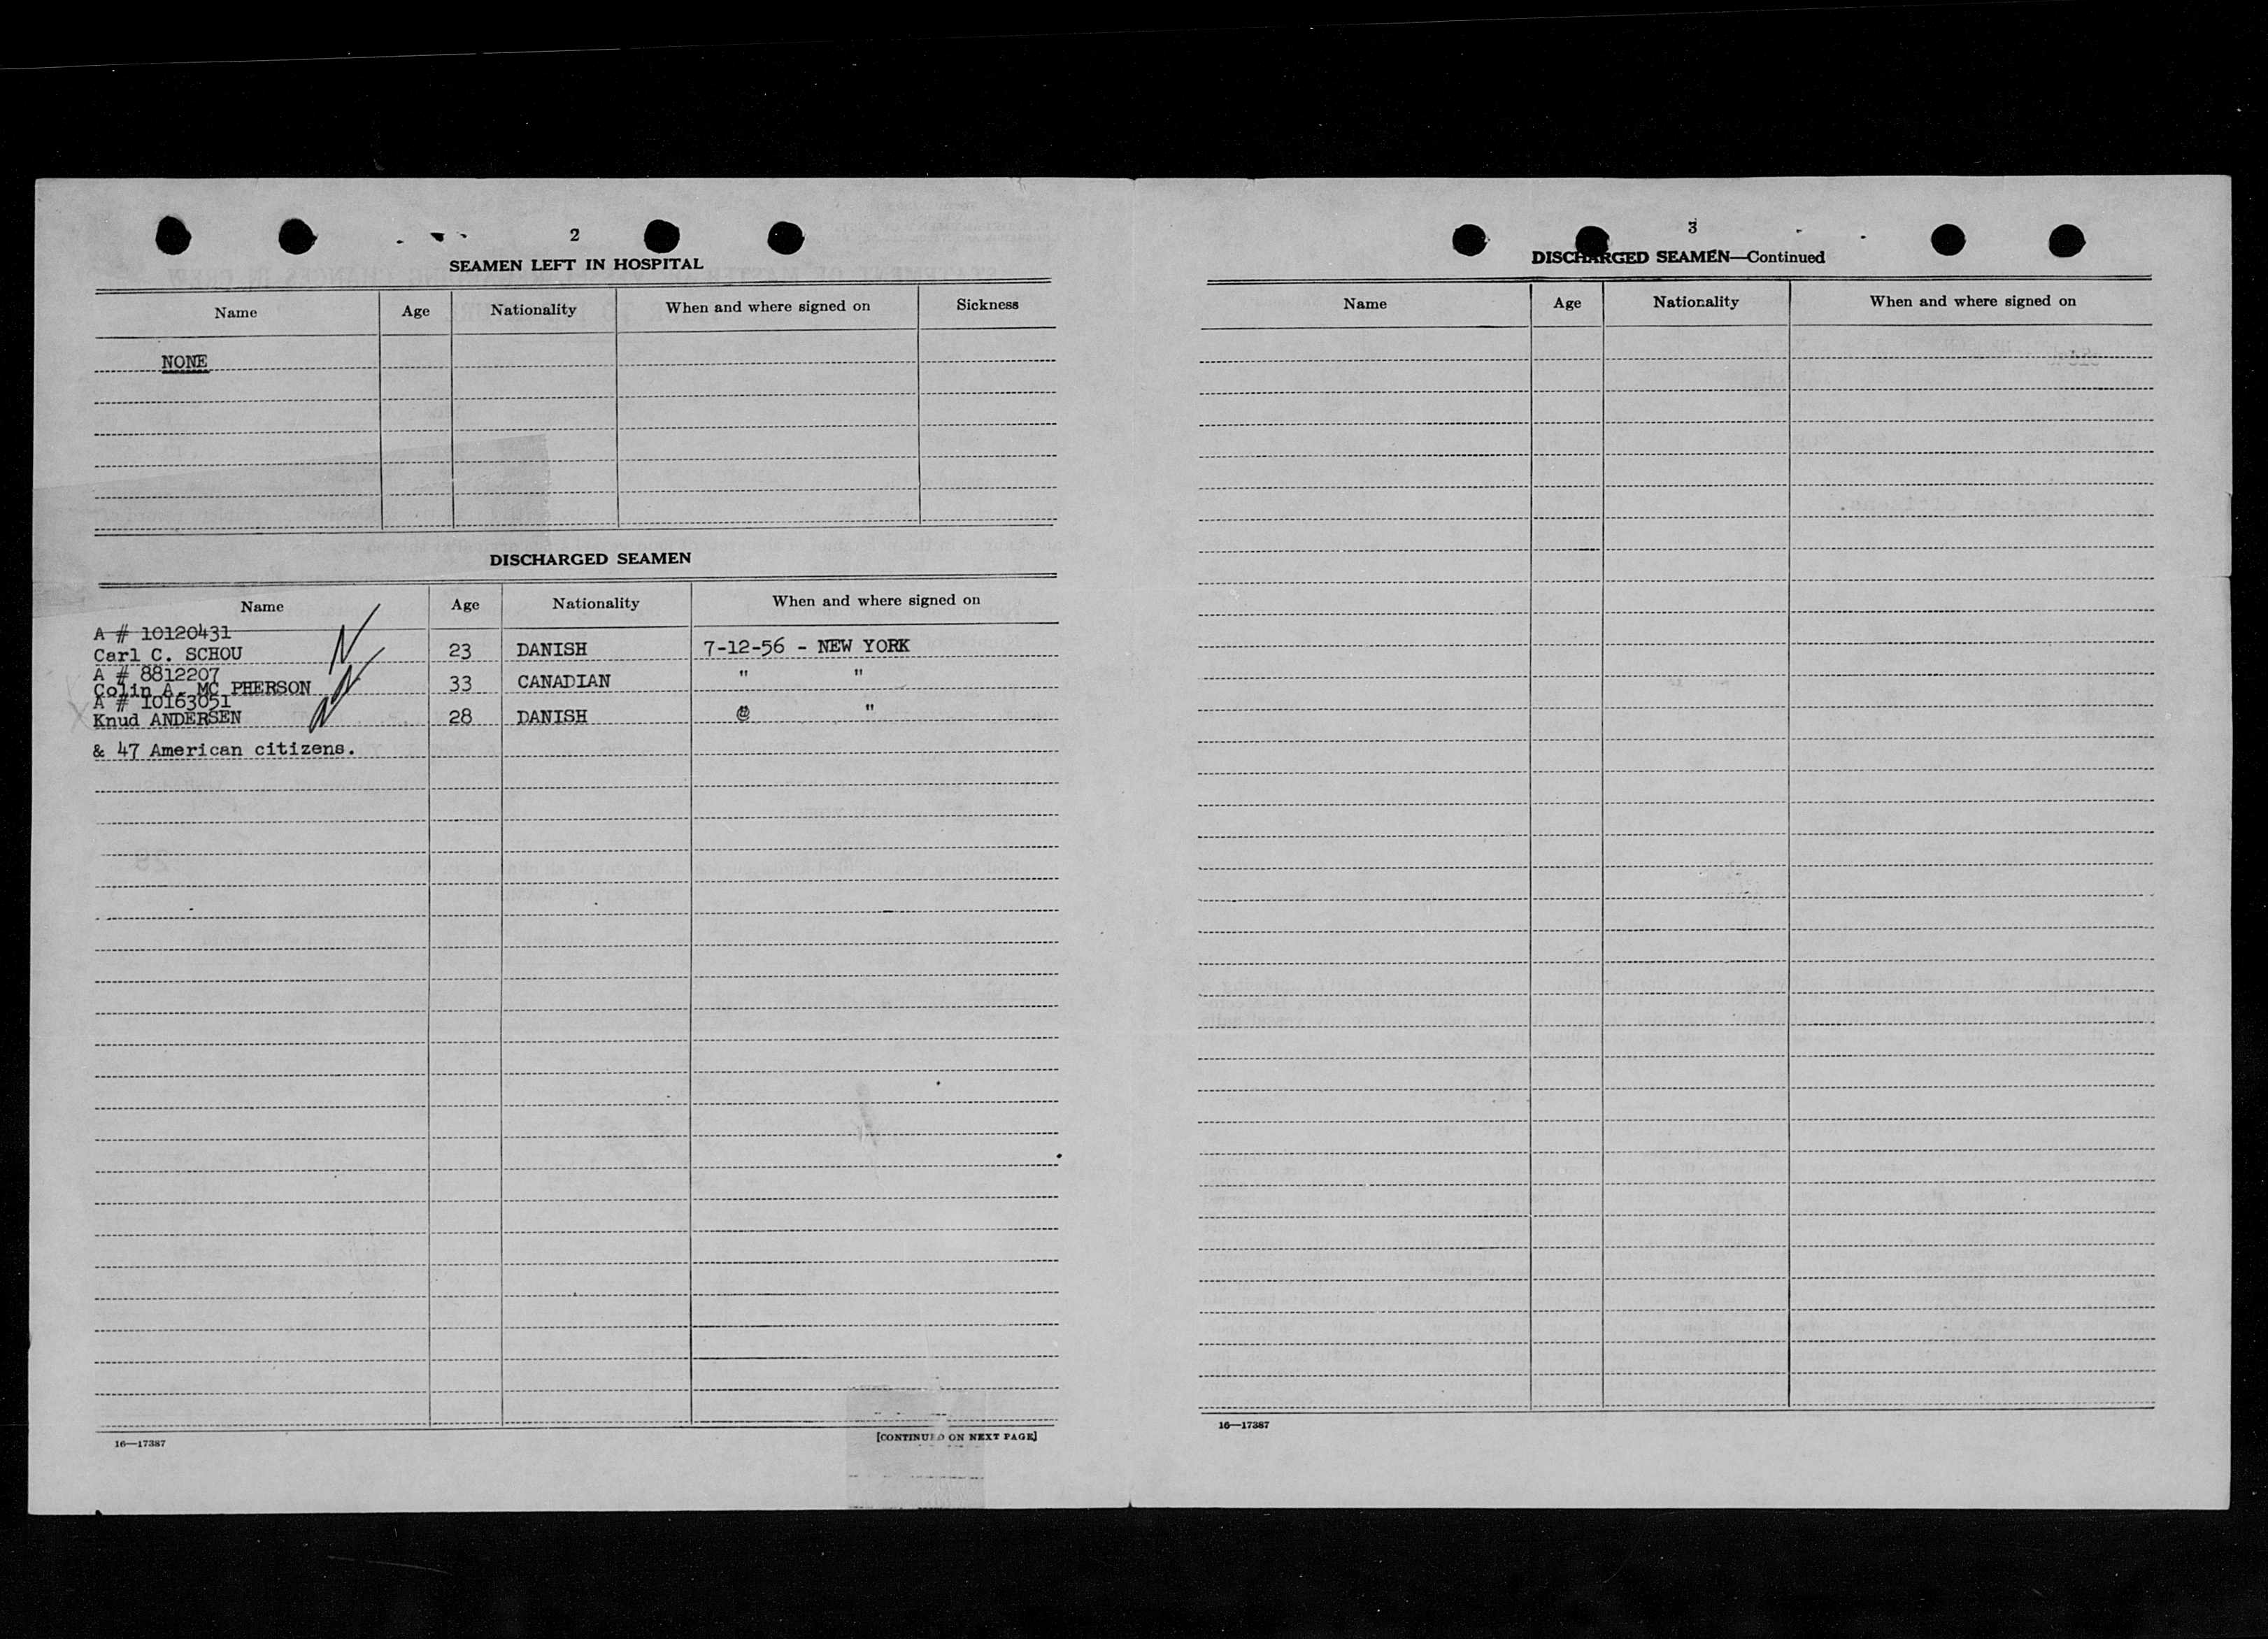 2
SEAMEN LEFT IN HOSPITAL
Name Age Nationality When and where signed on Sickness
NONE
DISCHARGED SEAMEN
Name Age Nationality When and where signed on
A # 10120431
Carl C. SCHOU 23 DANISH 7-12-56 - NEW YORK
A # 8812207
Colin A. MC PHERSON 33 CANADIAN " "
A # 10163051
Knud ANDERSEN 28 DANISH @ "
& 47 American citizens.
16—17387 [CONTINUED ON NEXT PAGE]
3
DISCHARGED SEAMEN—Continued
Name Age Nationality When and where signed on
16—17387